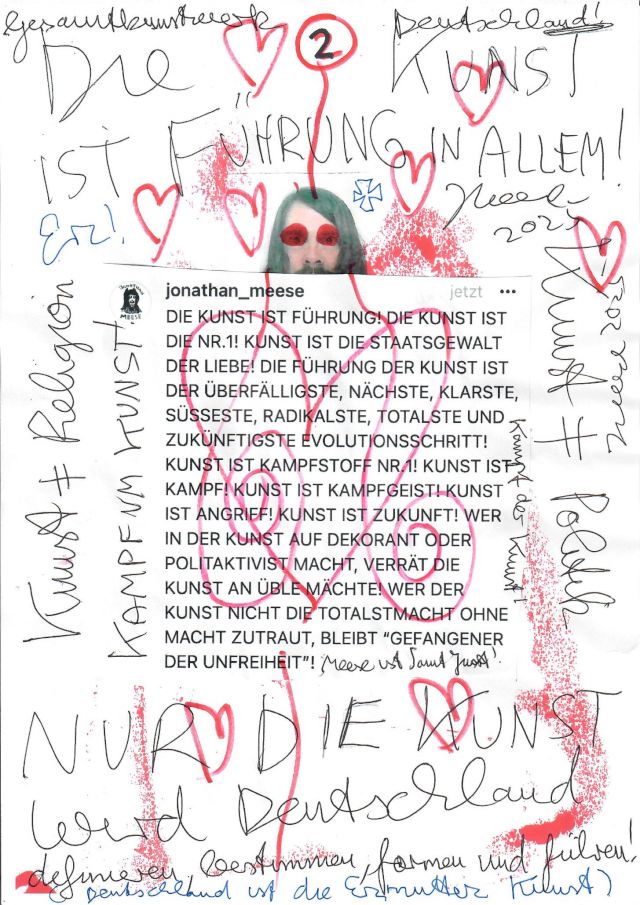 Gesamtkunstwerk Deutschland!
2
Die KUNST
IST FÜHRUNG IN ALLEM!
Erz!
Meese
2023
Kunst ≠ Religion
KAMPF UM KUNST!
JONATHAN
MEESE
jonathan_meese jetzt •••
DIE KUNST IST FÜHRUNG! DIE KUNST IST
DIE NR.1! KUNST IST DIE STAATSGEWALT
DER LIEBE! DIE FÜHRUNG DER KUNST IST
DER ÜBERFÄLLIGSTE, NÄCHSTE, KLARSTE,
SÜSSESTE, RADIKALSTE, TOTALSTE UND
ZUKÜNFTIGSTE EVOLUTIONSSCHRITT!
KUNST IST KAMPFSTOFF NR.1! KUNST IST
KAMPF! KUNST IST KAMPFGEIST! KUNST
IST ANGRIFF! KUNST IST ZUKUNFT! WER
IN DER KUNST AUF DEKORANT ODER
POLITAKTIVIST MACHT, VERRÄT DIE
KUNST AN ÜBLE MÄCHTE! WER DER
KUNST NICHT DIE TOTALSTMACHT OHNE
MACHT ZUTRAUT, BLEIBT “GEFANGENER
DER UNFREIHEIT”! Meese ist Saint Just!
Kunst ≠ Politik
Meese 2023
Kampf der Kunst!
NUR DIE KUNST
wird Deutschland
definieren, bestimmen, formen und führen!
(Deutschland ist die Erzmutter Kunst)